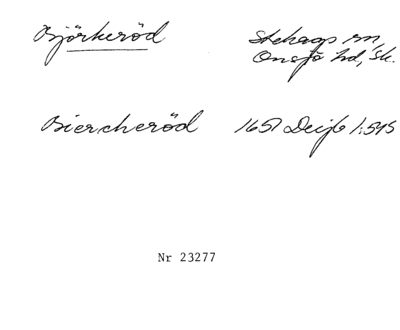 Björkeröd
Stehags sn,
Onsjö hd, Sk.
Biercheröd 1657 DeijB 1:595
Nr 23277